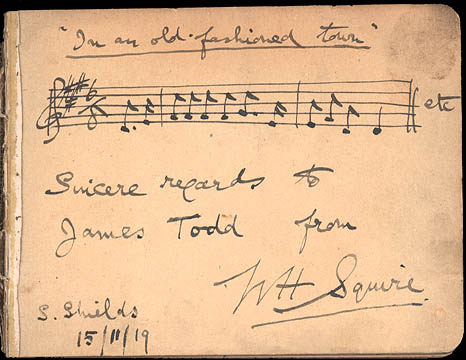 "In an old-fashioned town"
6
8
etc
Sincere regards to
James Todd from
WH Squire.
S. Shields
15/11/19